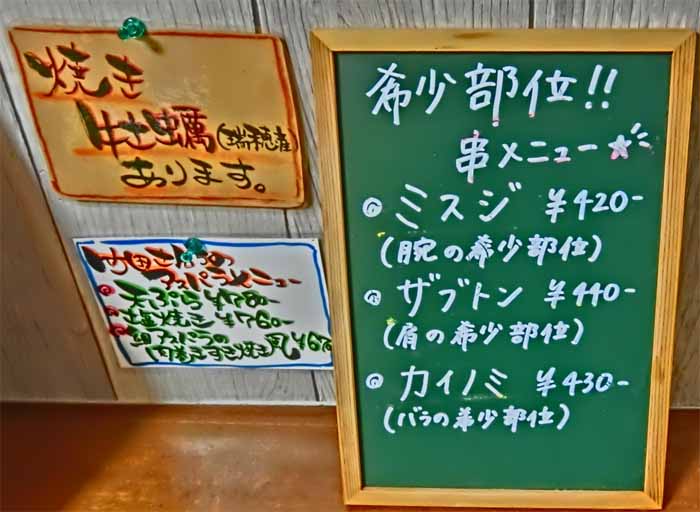 焼き
牡蠣(瑞穂産)
あります。
内田さんちの
アスパラメニュー
天ぷら ¥780-
塩焼き ¥760-
肉巻きすき焼き風
希少部位!!
串メニー☆
◎ミスジ ¥420-
(腕の希少部位)
◎ザブトン ¥440-
(肩の希少部位)
◎カイノミ ¥430-
(バラの希少部位)